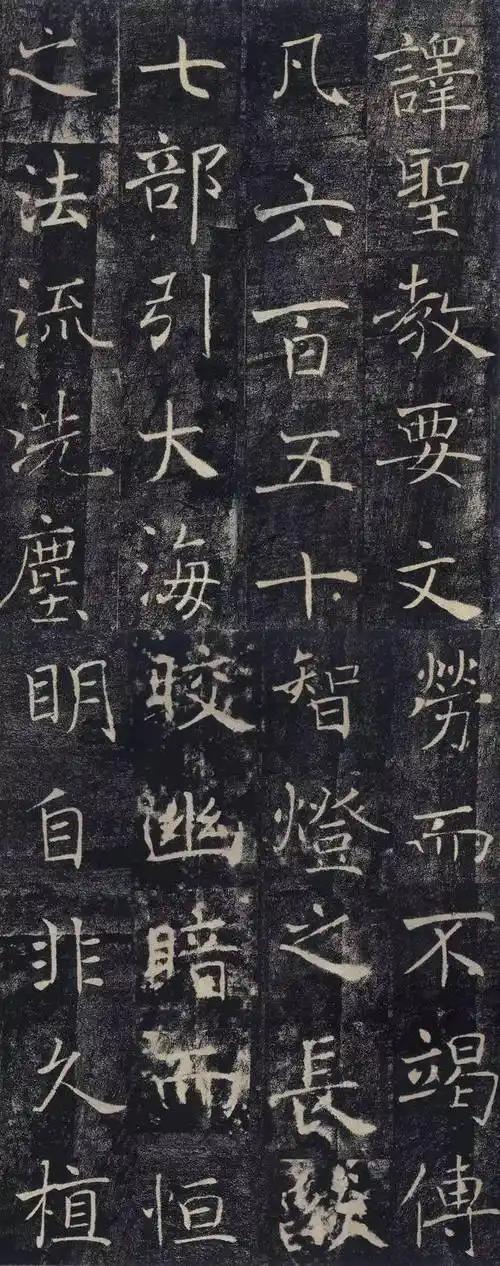 譯聖教要文
凡六百五十
七部引大海
之法流洗塵
勞而不竭傳
智燈之長燄
皎幽暗而恒
明自非久植